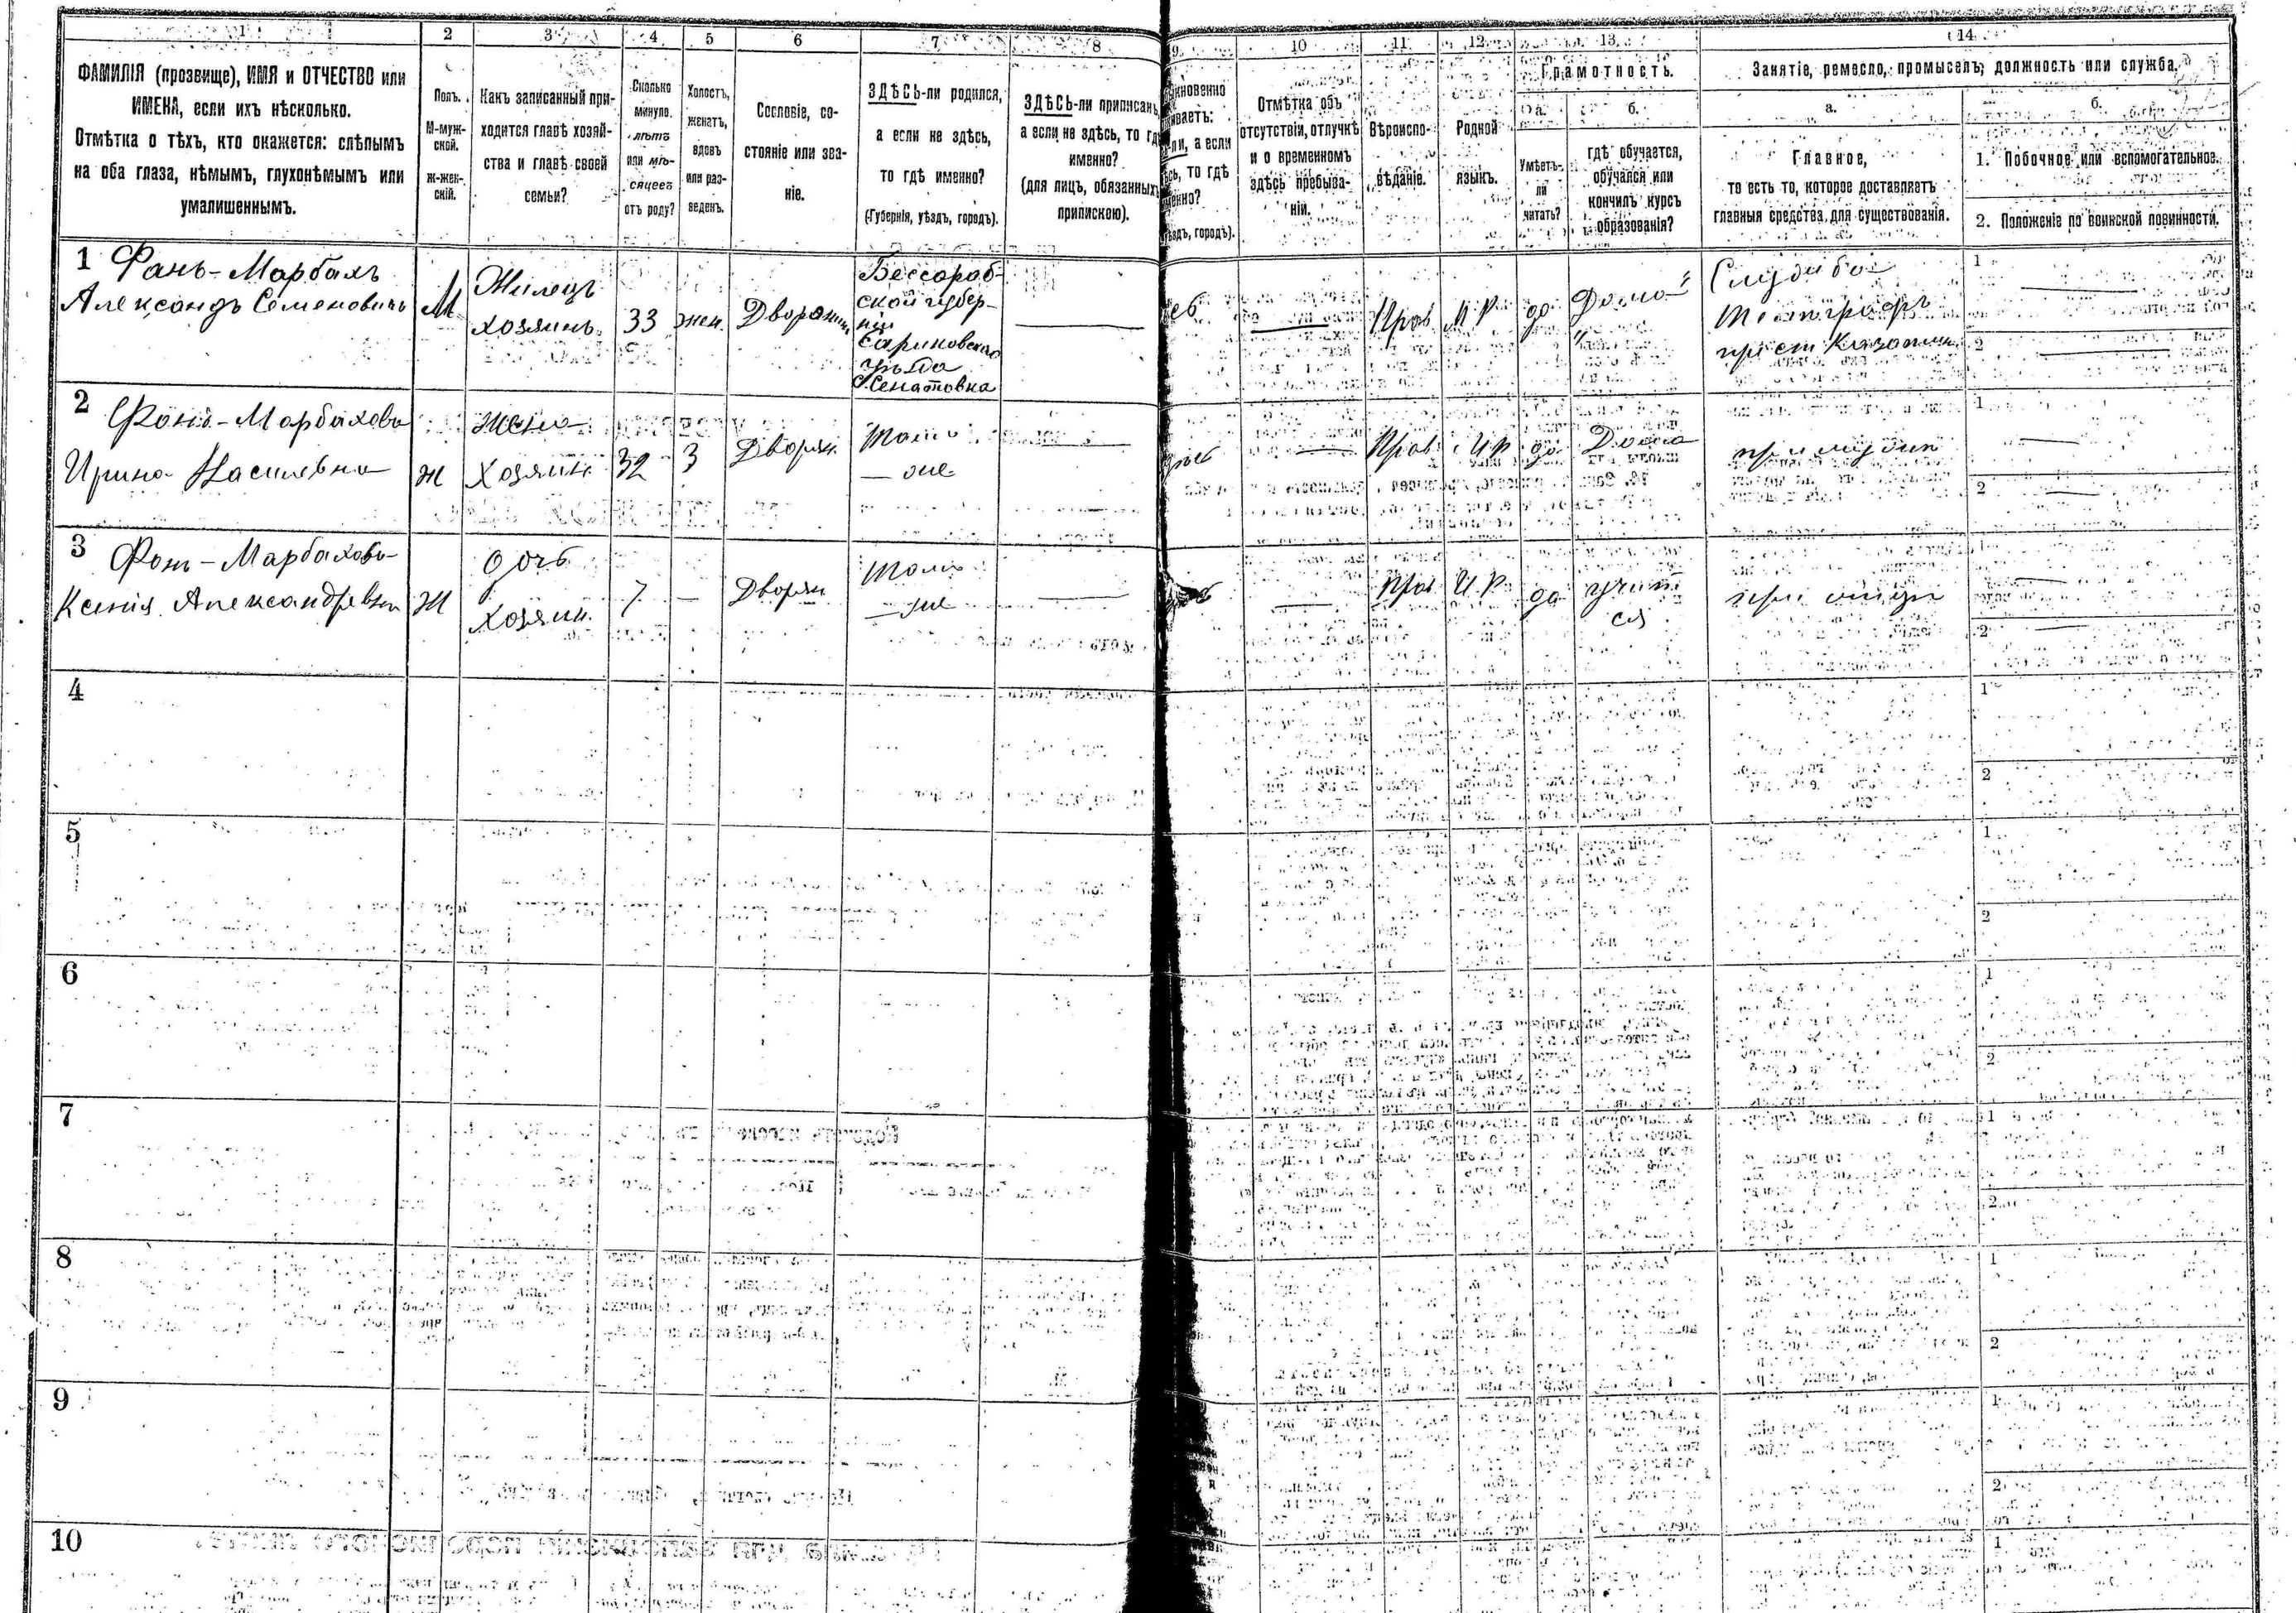 1 2 3 4 5 6 7 8 9 10 11 12 13 14
ФАМИЛІЯ (прозвище), ИМЯ и ОТЧЕСТВО или
ИМЕНА, если ихъ нѣсколько.
Отмѣтка о тѣхъ, кто окажется: слѣпымъ
на оба глаза, нѣмымъ, глухонѣмымъ или
умалишеннымъ.
Полъ.
М-муж-
ской.
Ж-жен-
скій.
Какъ записанный при-
ходится главѣ хозяй-
ства и главѣ своей
семьи?
Сколько
минуло
лѣтъ
или мѣ-
сяцевъ
отъ роду?
Холостъ,
женатъ,
вдовъ
или раз-
веденъ.
Сословіе, со-
стояніе или зва-
ніе.
ЗДѢСЬ-ли родился,
а если не здѣсь,
то гдѣ именно?
(Губернія, уѣздъ, городъ).
ЗДѢСЬ-ли приписанъ,
а если не здѣсь, то гдѣ
именно?
(для лицъ, обязанныхъ
припискою).
кновенно
иваетъ:
ли, а если
сь, то гдѣ
менно?
ѣздъ, городъ).
Отмѣтка объ
отсутствіи, отлучкѣ
и о временномъ
здѣсь пребыва-
ніи.
Вѣроиспо-
вѣданіе.
Родной
языкъ.
Грамотность.
а.
Умѣетъ-
ли
читать?
б.
гдѣ обучается,
обучался или
кончилъ курсъ
образованія?
Занятіе, ремесло, промыселъ, должность или служба.
а.
Главное,
то есть то, которое доставляетъ
главныя средства для существованія.
б.
1. Побочное или вспомогательное.
2. Положеніе по воинской повинности.
1 Фанъ-Марбахъ
Александъ Семеновичъ
М
Жилецъ
хозяинъ.
33
жен.
Дворянин
Бессараб-
ской губер-
ніи
уѣзда
Да
Домо
Служба
Телеграфъ
Прав
1
2
2 Фонъ-Марбахова
Ирина Василевна
ж
Жена
Хозяин.
32
З
Дворян.
Тамъ
— же
Прав
да
Дома
при мужѣ
1
2
3 Фонъ-Марбахова
Ксенія Александревна
Ж
дочь
Хозяин.
7
—
Дворян
Тамъ
— же
Прав
да
учит
ся
при отцѣ
1
2
4
1
2
5
1
2
6
1
2
7
1
2
8
1
2
9
1
2
10
1